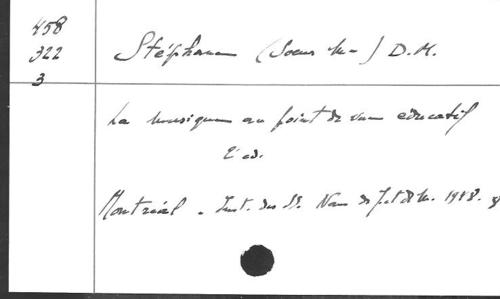 458
322
3
Stéphane (Soeur M-) D.M.
La musique au point de vue éducatif
2e ed.
Montréal. Inst. des SS. Noms de J. et de M. 19